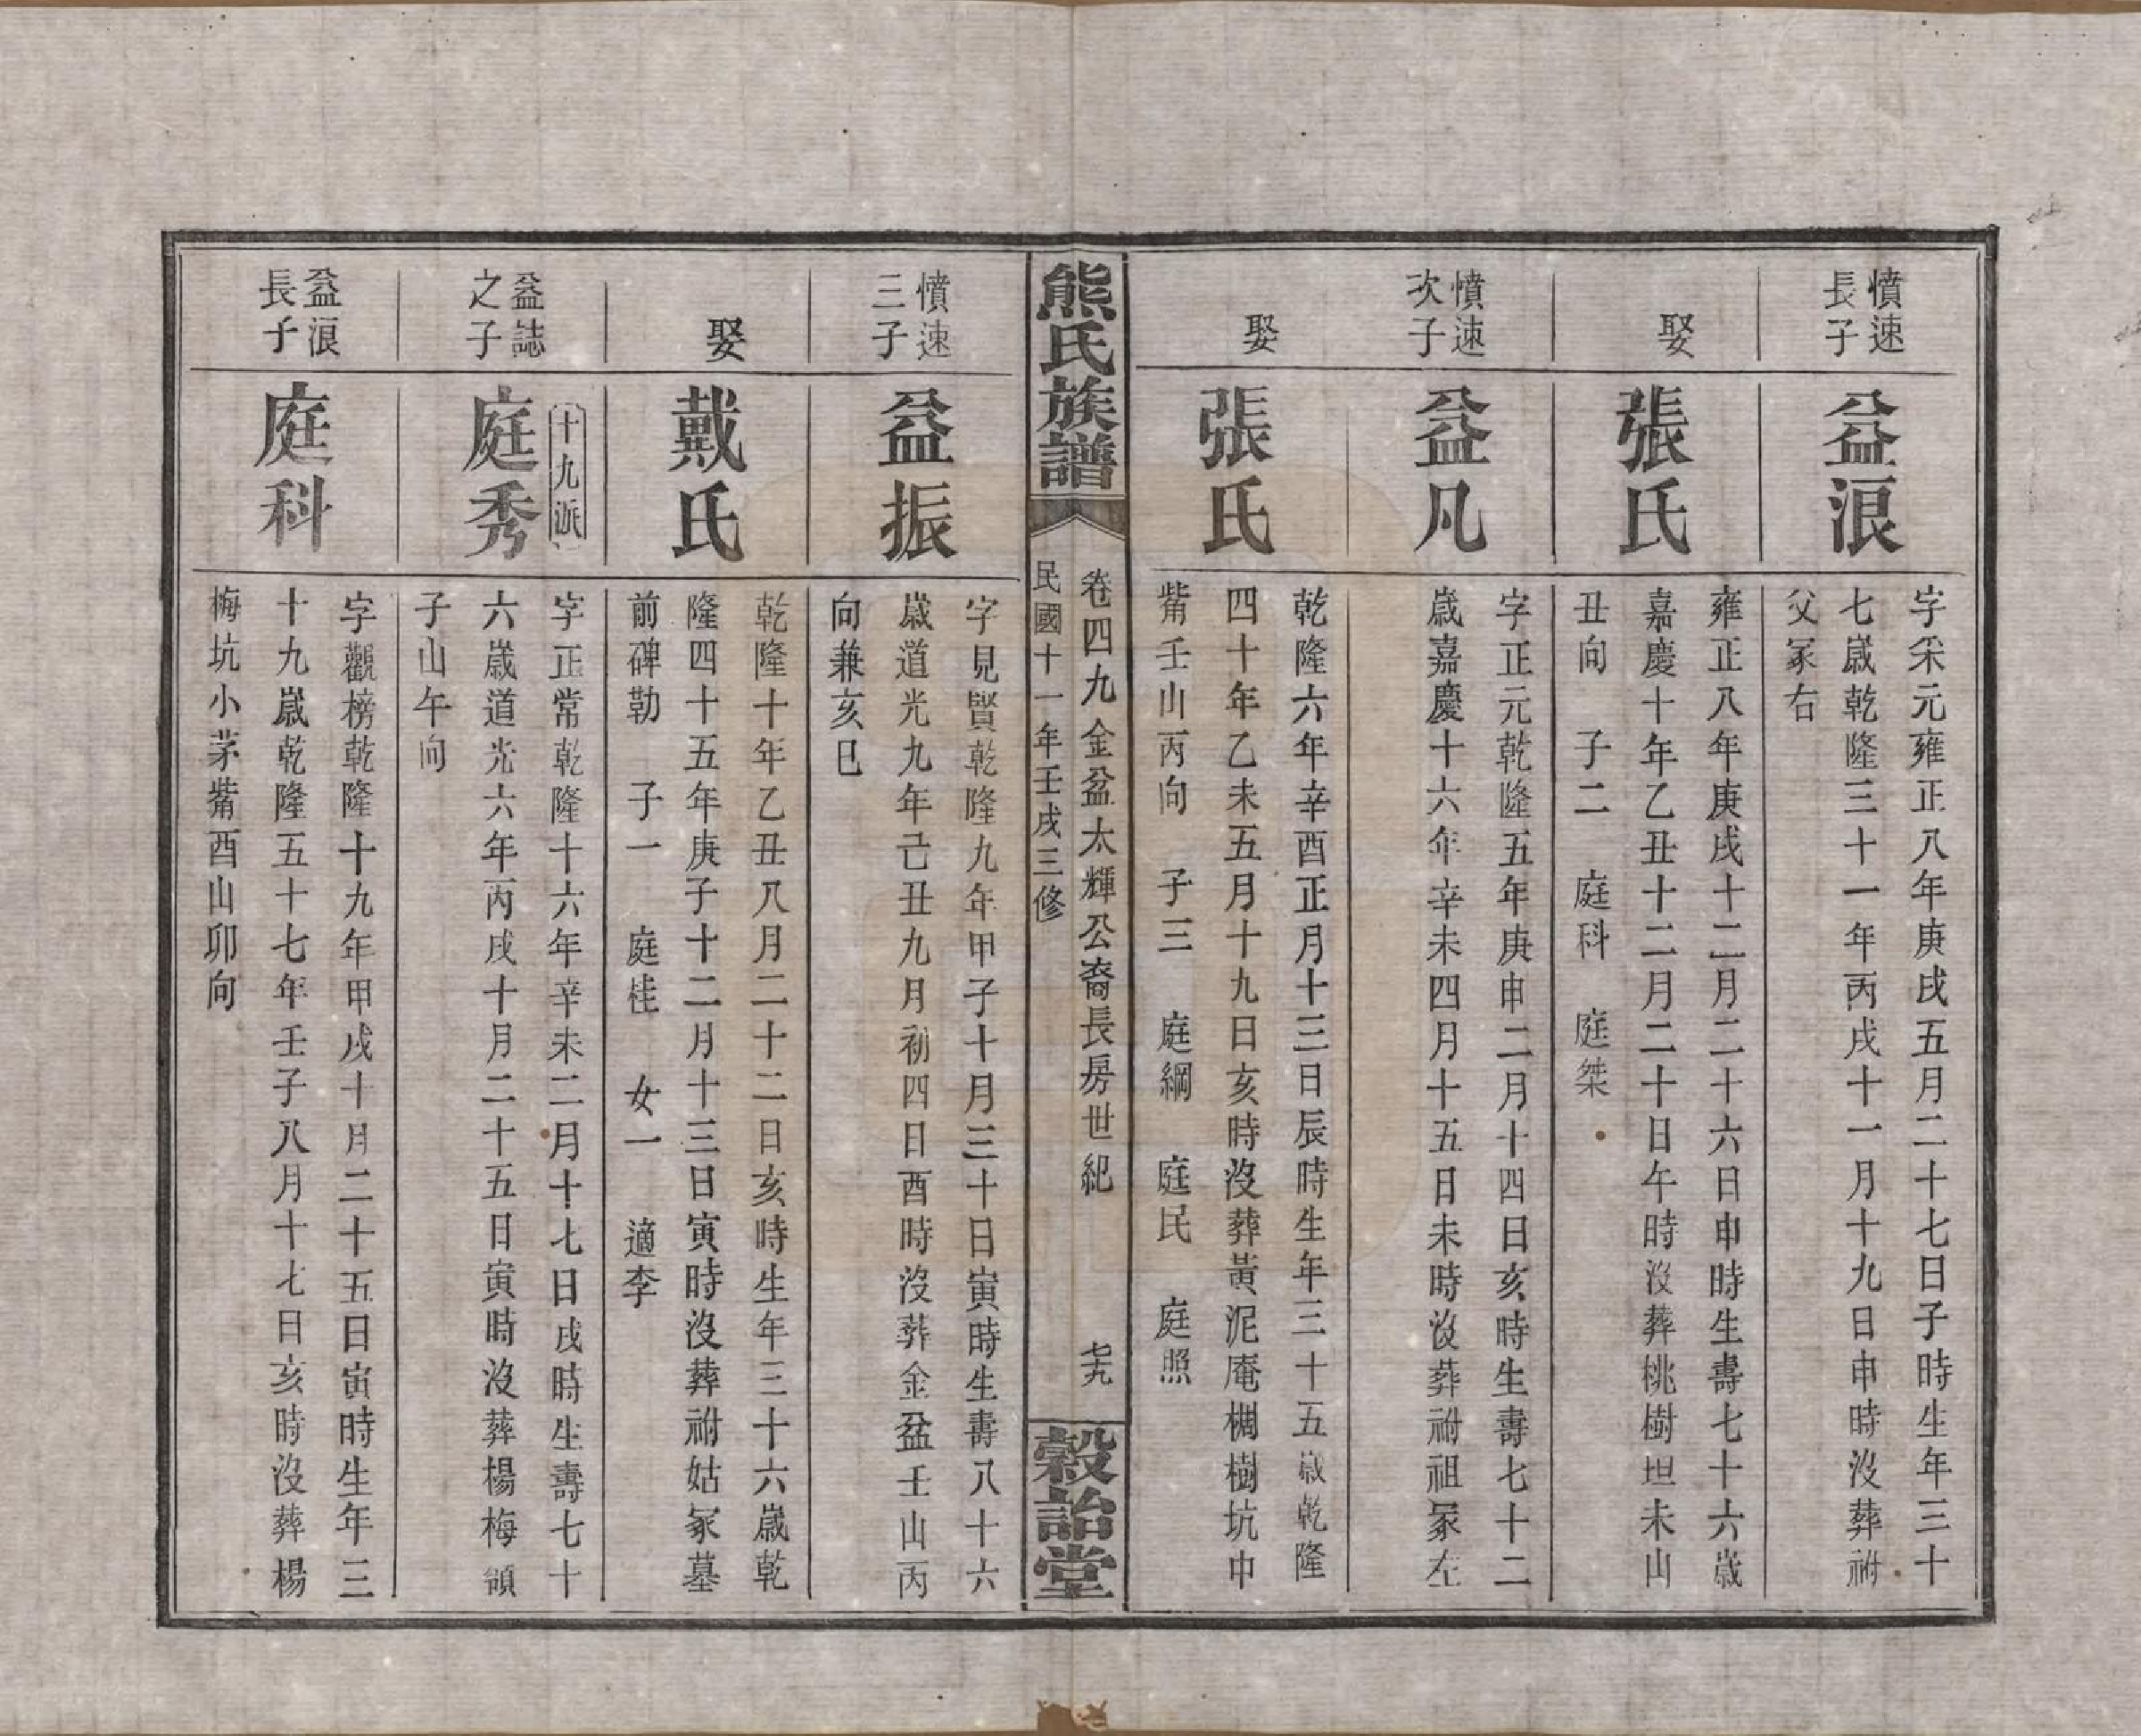 憤速
長子
益浪
字采元雍正八年庚戌五月二十七日子時生年三十
七歲乾隆三十一年丙戌十一月十九日申時沒葬祔
父冢右
娶
張氏
雍正八年庚戌十二月二十六日申時生壽七十六歲
嘉慶十年乙丑十二月二十日午時沒葬桃樹坦未山
丑向 子二 庭科 庭桀
憤速
次子
益凡
字正元乾隆五年庚申二月十四日亥時生壽七十二
歲嘉慶十六年辛未四月十五日未時沒葬祔祖冢左
娶
張氏
乾隆六年辛酉正月十三日辰時生年三十五歲乾隆
四十年乙未五月十九日亥時沒葬黃泥庵椆樹坑中
觜壬山丙向 子三 庭綱 庭民 庭照
熊氏族譜
卷四九金盆太輝公裔長房世紀 七九
民國十一年壬戌三修
穀詒堂
憤速
三子
益振
字見賢乾隆九年甲子十月三十日寅時生壽八十六
歲道光九年己丑九月初四日酉時沒葬金盆壬山丙
向兼亥巳
娶
戴氏
乾隆十年乙丑八月二十二日亥時生年三十六歲乾
隆四十五年庚子十二月十三日寅時沒葬祔姑冢墓
前碑勒 子一 庭桂 女一 適李
十九派
益誌
之子
庭秀
字正常乾隆十六年辛未二月十七日戌時生壽七十
六歲道光六年丙戌十月二十五日寅時沒葬楊梅嶺
子山午向
益浪
長子
庭科
字觀榜乾隆十九年甲戌十月二十五日寅時生年三
十九歲乾隆五十七年壬子八月十七日亥時沒葬楊
梅坑小茅觜酉山卯向